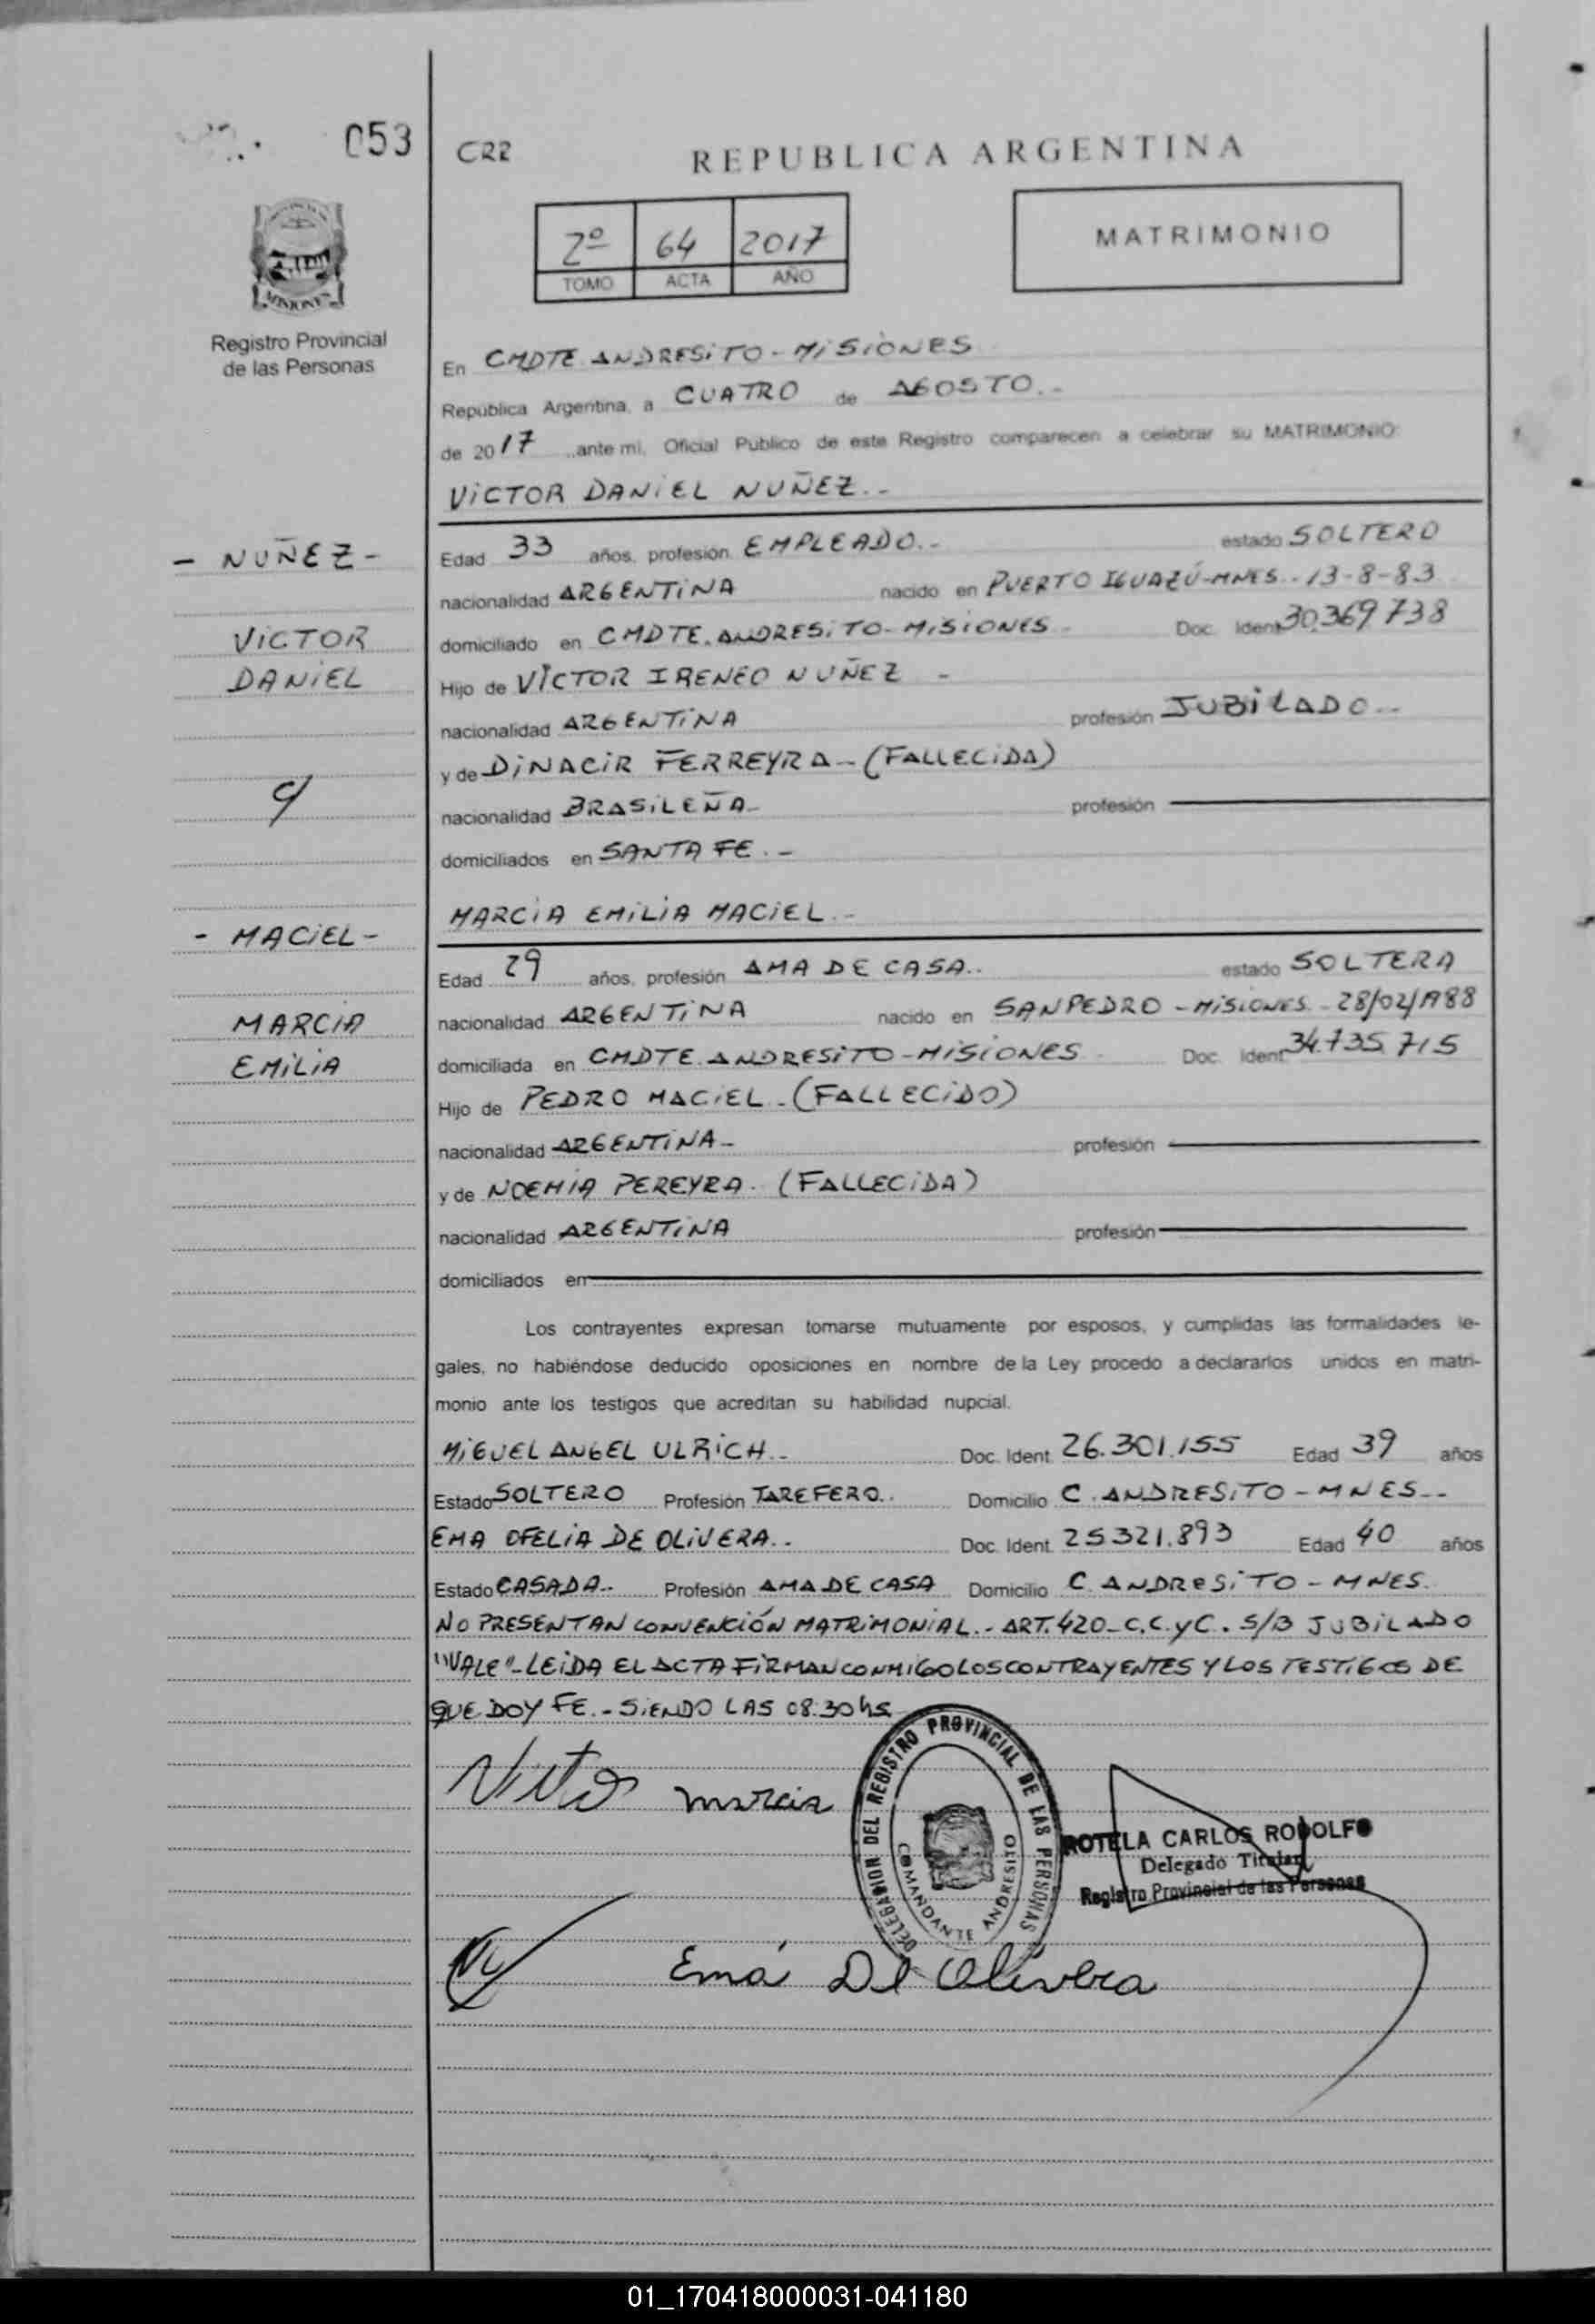 053
CRR
REPUBLICA ARGENTINA
2º 64 2017
TOMO ACTA AÑO
MATRIMONIO
MISIONES
Registro Provincial
de las Personas
En CMDTE ANDRESITO - MISIONES
República Argentina, a CUATRO de AGOSTO.-
de 2017 ..ante mi, Oficial Público de este Registro comparecen a celebrar su MATRIMONIO:
VICTOR DANIEL NUÑEZ.-
- NUÑEZ -
VICTOR
DANIEL
c/
- MACIEL -
MARCIA
EMILIA
Edad 33 años, profesión EMPLEADO.- estado SOLTERO
nacionalidad ARGENTINA nacido en PUERTO IGUAZÚ-MNES.-13-8-83
domiciliado en CMDTE. ANDRESITO-MISIONES- Doc. Ident 30.369738
Hijo de VICTOR IRENEO NUÑEZ -
nacionalidad ARGENTINA profesión JUBILADO.-
y de DINACIR FERREYRA-(FALLECIDA)
nacionalidad BRASILEÑA- profesión
domiciliados en SANTA FE.-
MARCIA EMILIA MACIEL.-
Edad 29 años, profesión AMA DE CASA.. estado SOLTERA
nacionalidad ARGENTINA nacido en SAN PEDRO - MISIONES - 28/02/1988
domiciliada en CMDTE. ANDRESITO-MISIONES- Doc. Ident 34.735.715
Hijo de PEDRO MACIEL-(FALLECIDO)
nacionalidad ARGENTINA- profesión
y de NOEMIA PEREYRA. (FALLECIDA)
nacionalidad ARGENTINA profesión
domiciliados en
Los contrayentes expresan tomarse mutuamente por esposos, y cumplidas las formalidades le-
gales, no habiéndose deducido oposiciones en nombre de la Ley procedo a declararlos unidos en matri-
monio ante los testigos que acreditan su habilidad nupcial.
MIGUEL ANGEL ULRICH.- Doc. Ident. 26.301.155 Edad 39 años
Estado SOLTERO Profesión TAREFERO.. Domicilio C. ANDRESITO - MNES..
EMA OFELIA DE OLIVERA.. Doc. Ident. 25321.893 Edad 40 años
Estado CASADA.. Profesión AMA DE CASA Domicilio C. ANDRESITO - MNES.
NO PRESENTAN CONVENCIÓN MATRIMONIAL.- ART. 420-C.C.yC. S/B JUBILADO
"VALE"-LEIDA EL ACTA FIRMAN CONMIGO LOS CONTRAYENTES Y LOS TESTIGOS DE
QUE DOY FE.- SIENDO LAS 08:30hs.
marcia
DELEGACION DEL REGISTRO PROVINCIAL DE LAS PERSONAS
COMANDANTE ANDRESITO
ROTELA CARLOS RODOLFO
Delegado Titular
Registro Provincial de las Personas
Ema De Olivera
01_170418000031-041180